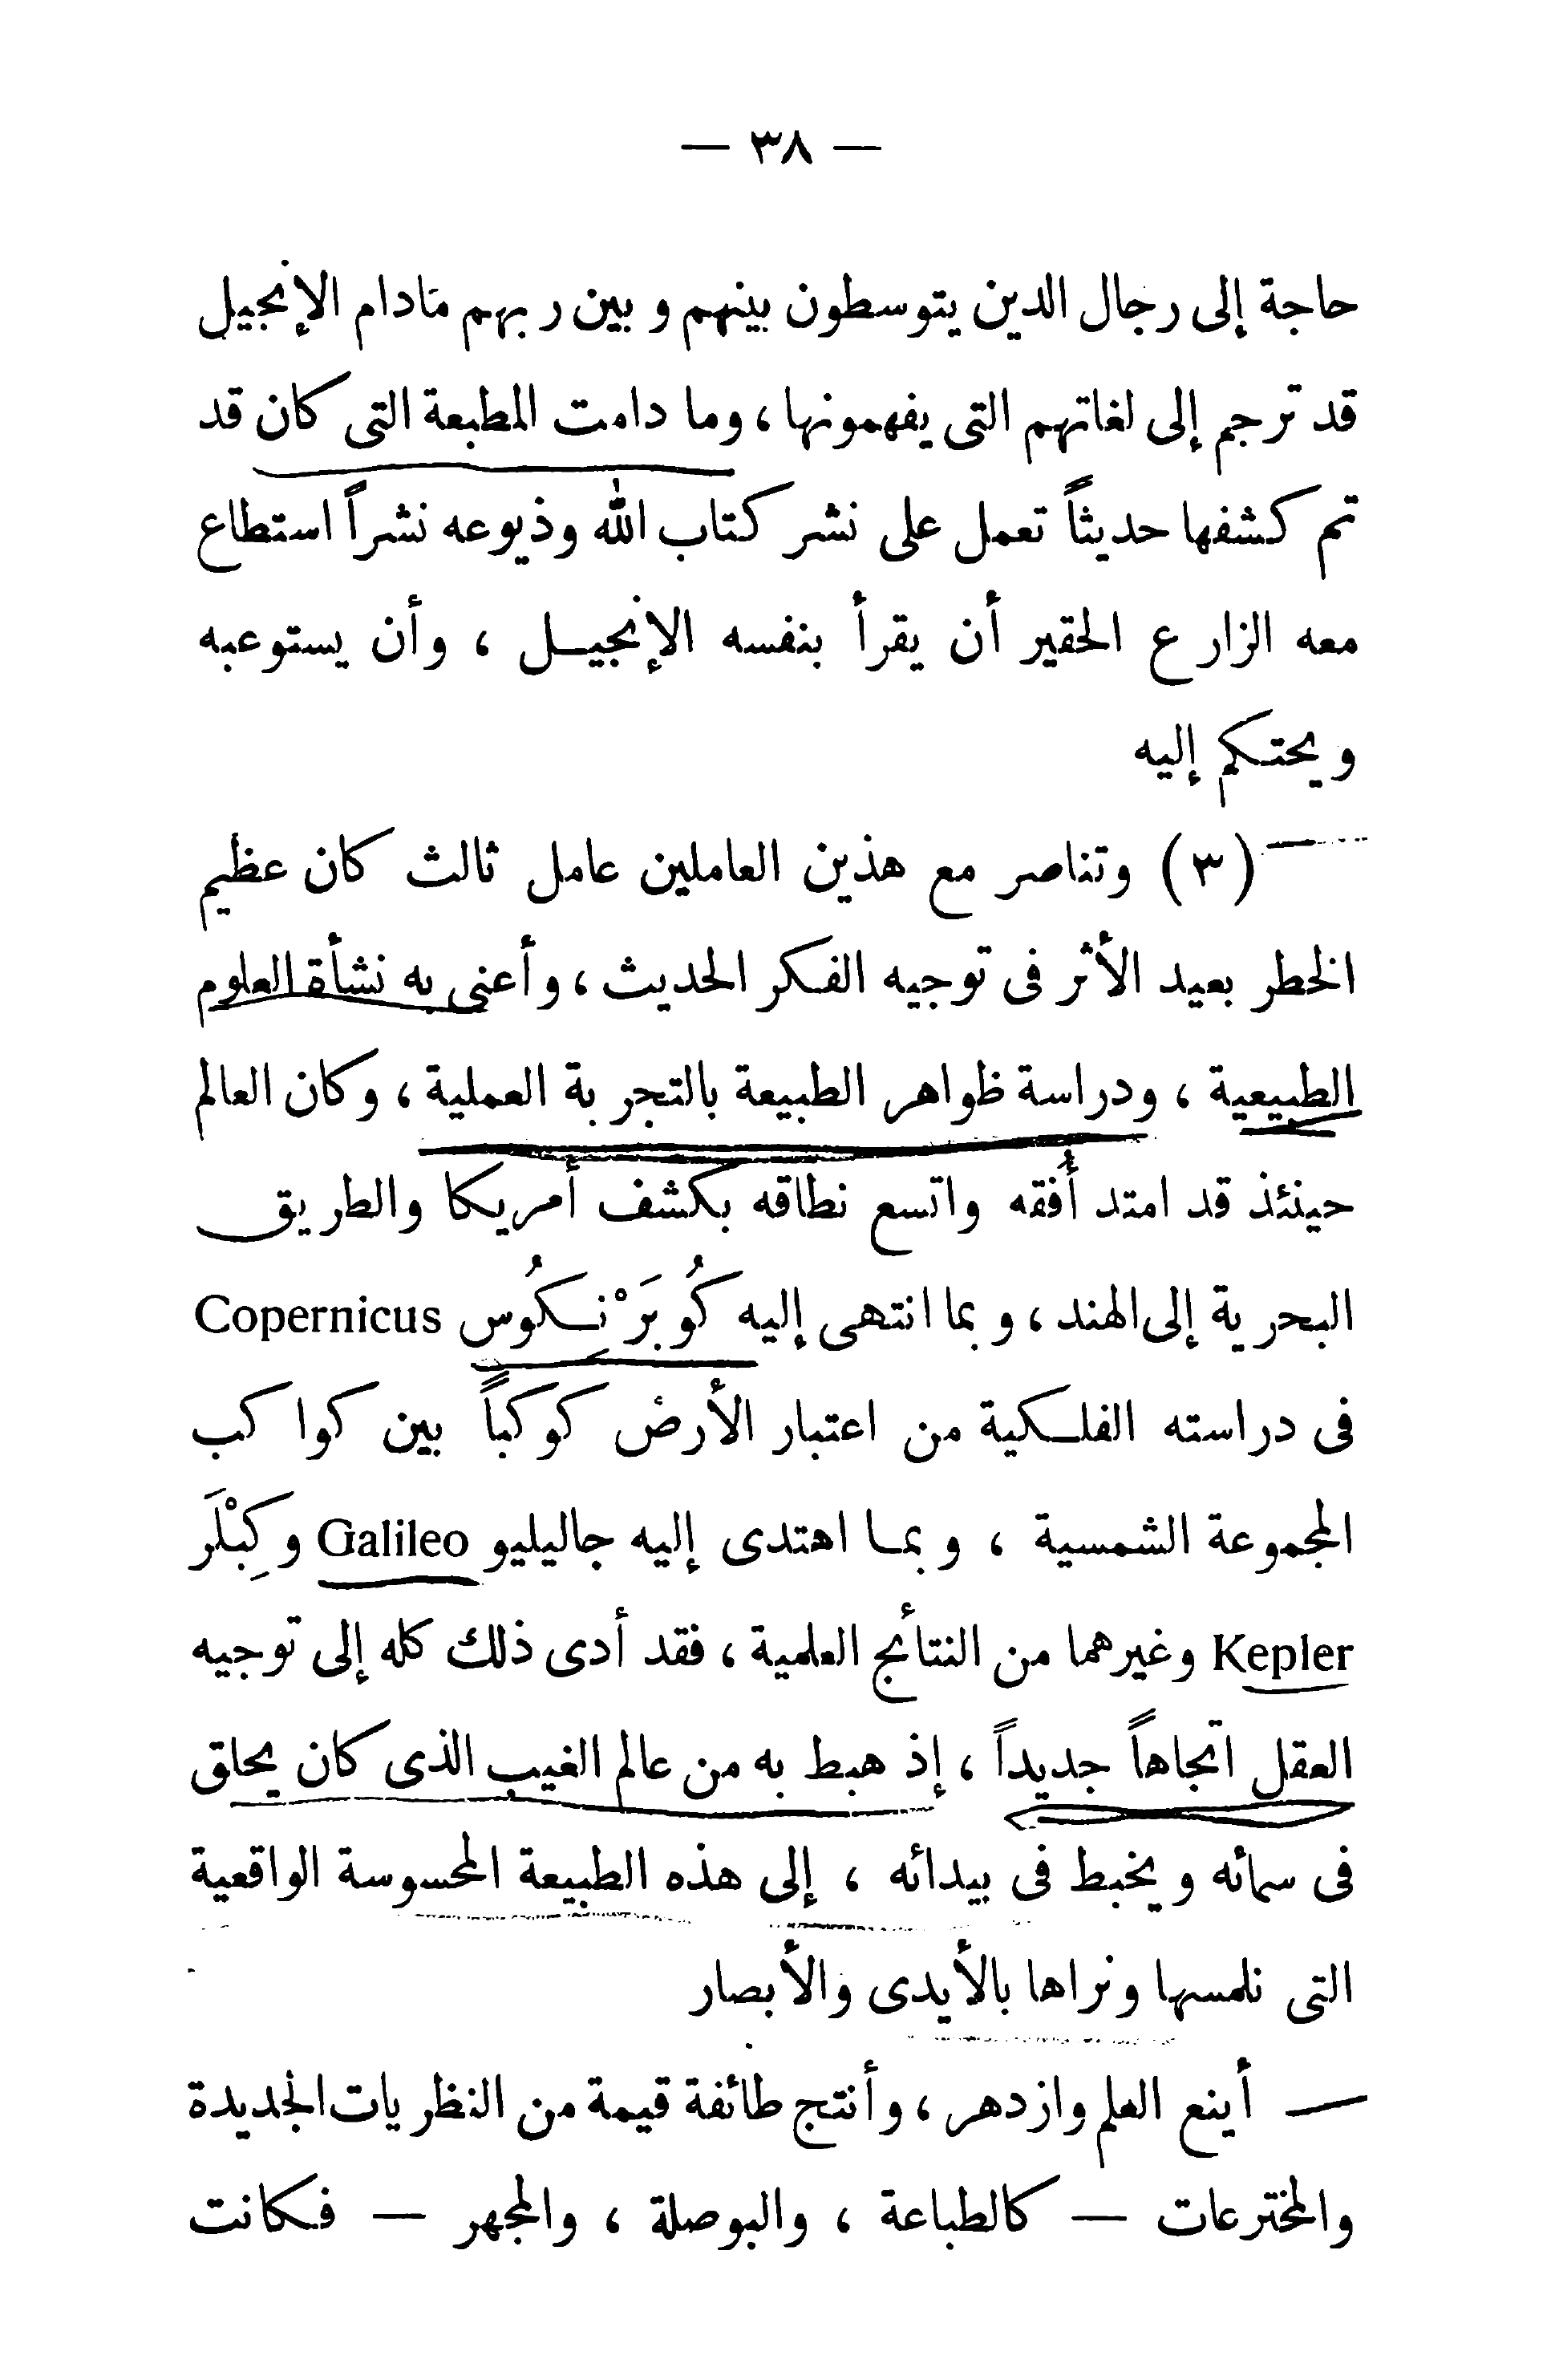 — ٣٨ —
حاجة إلى رجال الدين يتوسطون بينهم وبين ربهم مادام الإنجيل
قد ترجم إلى لغاتهم التى يفهمونها ، وما دامت المطبعة التى كان قد
تم كشفها حديثاً تعمل على نشر كتاب الله وذيوعه نشراً استطاع
معه الزارع الحقير أن يقرأ بنفسه الإنجيـل ، وأن يستوعبه
ويحتكم إليه
(٣) وتناصر مع هذين العاملين عامل ثالث كان عظيم
الخطر بعيد الأثر فى توجيه الفكر الحديث ، وأعنى به نشأة العلوم
الطبيعية ، ودراسة ظواهر الطبيعة بالتجربة العملية ، وكان العالم
حينئذ قد امتد أُفقه واتسع نطاقه بكشف أمريكا والطريق
البحرية إلى الهند ، وبما انتهى إليه كُوبَرْنِـكُوس Copernicus
فى دراسته الفلـكية من اعتبار الأرض كوكباً بين كواكب
المجموعة الشمسية ، وبمـا اهتدى إليه جاليليو Galileo وكِبْلَر
Kepler وغيرهما من النتائج العلمية ، فقد أدى ذلك كله إلى توجيه
العقل اتجاهاً جديداً ، إذ هبط به من عالم الغيب الذى كان يحلق
فى سمائه ويخبط فى بيدائه ، إلى هذه الطبيعة المحسوسة الواقعية
التى نلمسها ونراها بالأيدى والأبصار
أينع العلم وازدهر ، وأنتج طائفة قيمة من النظريات الجديدة
والمخترعات — كالطباعة ، والبوصلة ، والمجهر — فكانت